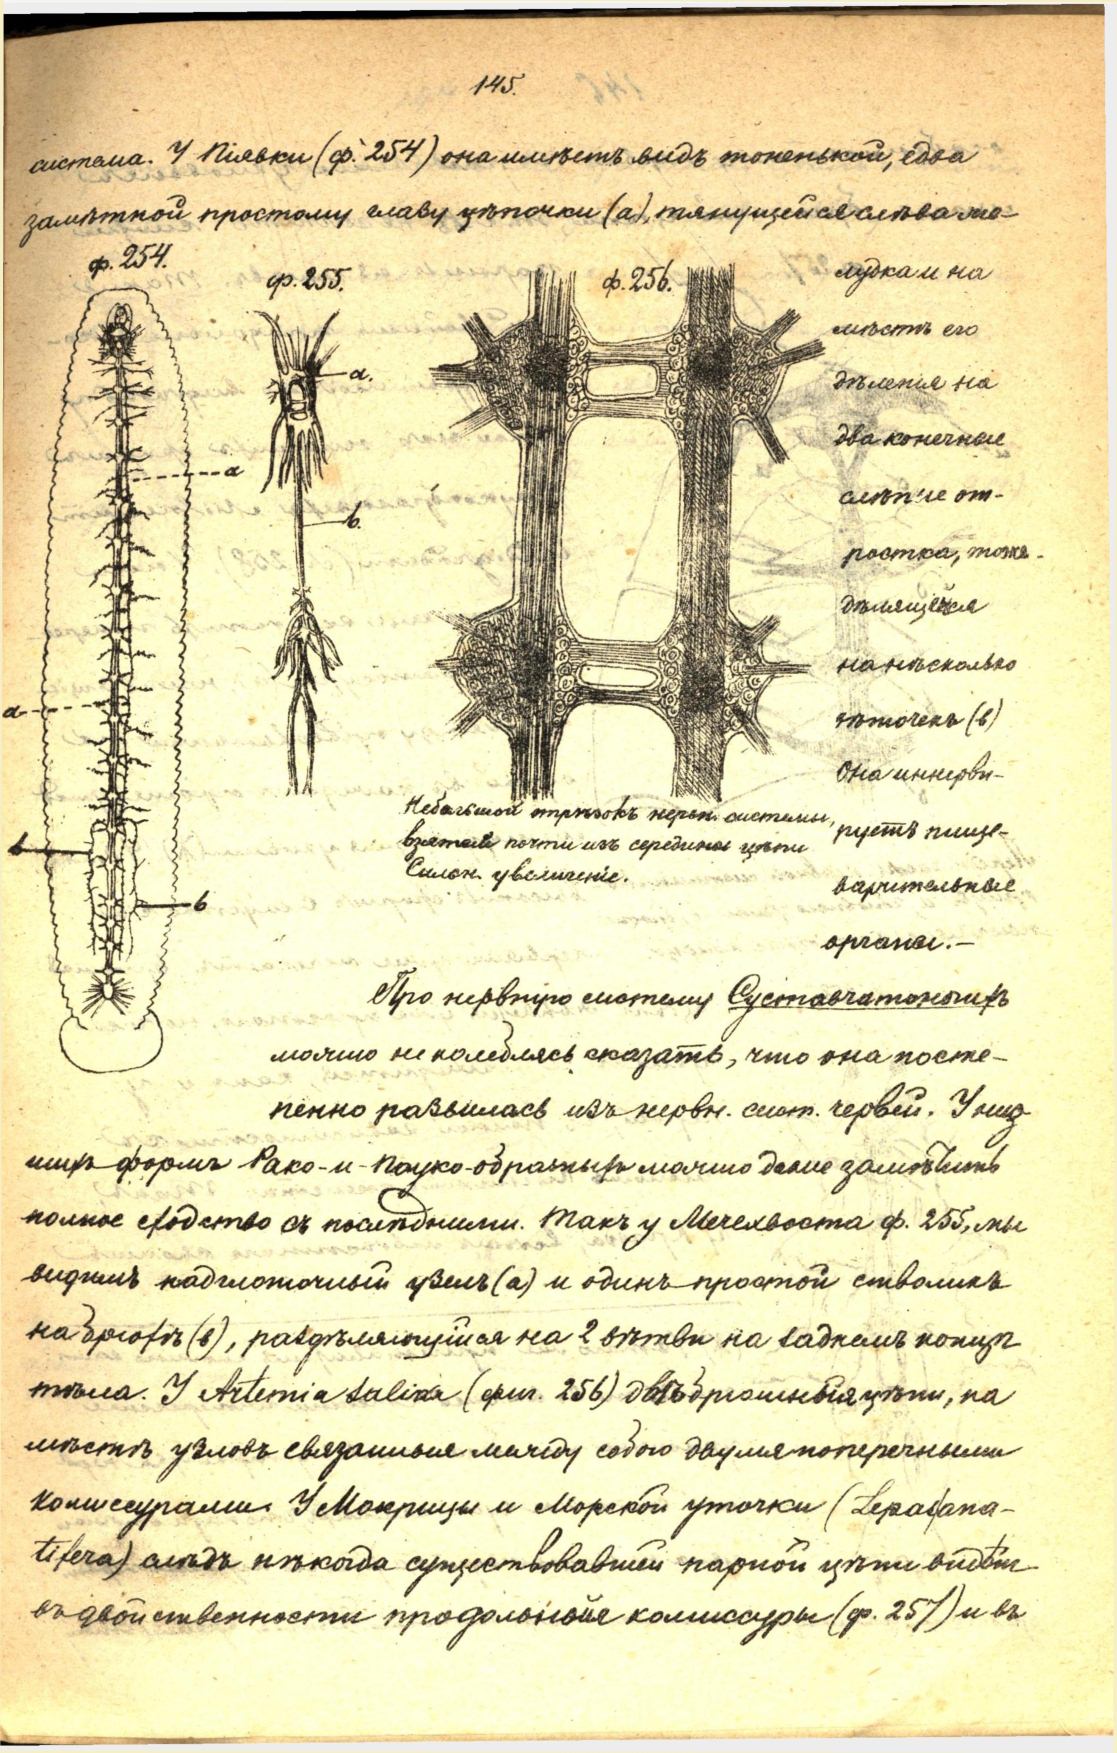 145.
система. У Піявки (ф. 254) она имѣетъ видъ тоненькой, едва
замѣтной простому глазу цѣпочки (а), тянущейся слѣва же-
ф. 254.
ф. 255.
ф. 256.
лудка и на
мѣстѣ его
дѣленія на
два конечные
слѣпые от-
ростка, тоже
дѣлящейся
на нѣсколько
вѣточекъ (в)
Она иннерви-
руетъ пище-
варительные
органы. —
a.
b.
a
a
b
b
Небольшой отрѣзокъ нервн. системы,
взятый почти изъ середины цѣпи
Сильн. увеличеніе.
Про нервную систему Суставчатоногихъ
можно не колеблясь сказать, что она посте-
пенно развилась изъ нервн. сист. червей. У низ
шихъ формъ Рако- и- Пауко-образныхъ можно даже замѣтить
полное сходство съ послѣдними. Такъ у Мечехвоста ф. 255, мы
видимъ надглоточный узелъ (а) и одинъ простой стволикъ
на брюхѣ (в), раздѣляющійся на 2 вѣтви на заднемъ концѣ
тѣла. У Artemia salina (фиг. 256) двѣ брюшныя цѣпи, на
мѣстѣ узловъ связанныя между собою двумя поперечными
комиссурами. У Мокрицы и Морской уточки (Lepas ana-
tifera) слѣдъ нѣкогда существовавшей парной цѣпи видѣнъ
въ двойственности продольной комиссуры (ф. 257) и въ